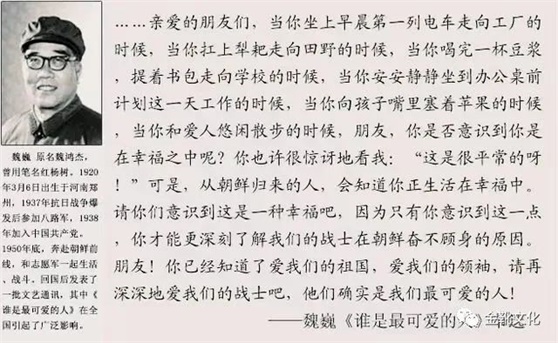 魏巍 原名魏鸿杰，
曾用笔名红杨树。1920
年3月6日出生于河南郑
州，1937年抗日战争爆
发后参加八路军，1938
年加入中国共产党。
1950年底，奔赴朝鲜前
线，和志愿军一起生活
、战斗。回国后发表了
一批文艺通讯，其中《
谁是最可爱的人》在全
国引起了广泛影响。
……亲爱的朋友们，当你坐上早晨第一列电车走向工厂的
时候，当你扛上犁耙走向田野的时候，当你喝完一杯豆浆
，提着书包走向学校的时候，当你安安静静坐到办公桌前
计划这一天工作的时候，当你向孩子嘴里塞着苹果的时候
，当你和爱人悠闲散步的时候，朋友，你是否意识到你是
在幸福之中呢？你也许很惊讶地看我：“这是很平常的呀
！”可是，从朝鲜归来的人，会知道你正生活在幸福中。
请你们意识到这是一种幸福吧，因为只有你意识到这一点
，你才能更深刻了解我们的战士在朝鲜奋不顾身的原因。
朋友！你已经知道了爱我们的祖国，爱我们的领袖，请再
深深地爱我们的战士吧，他们确实是我们最可爱的人！
——魏巍《谁是最可爱的人》
金都文化